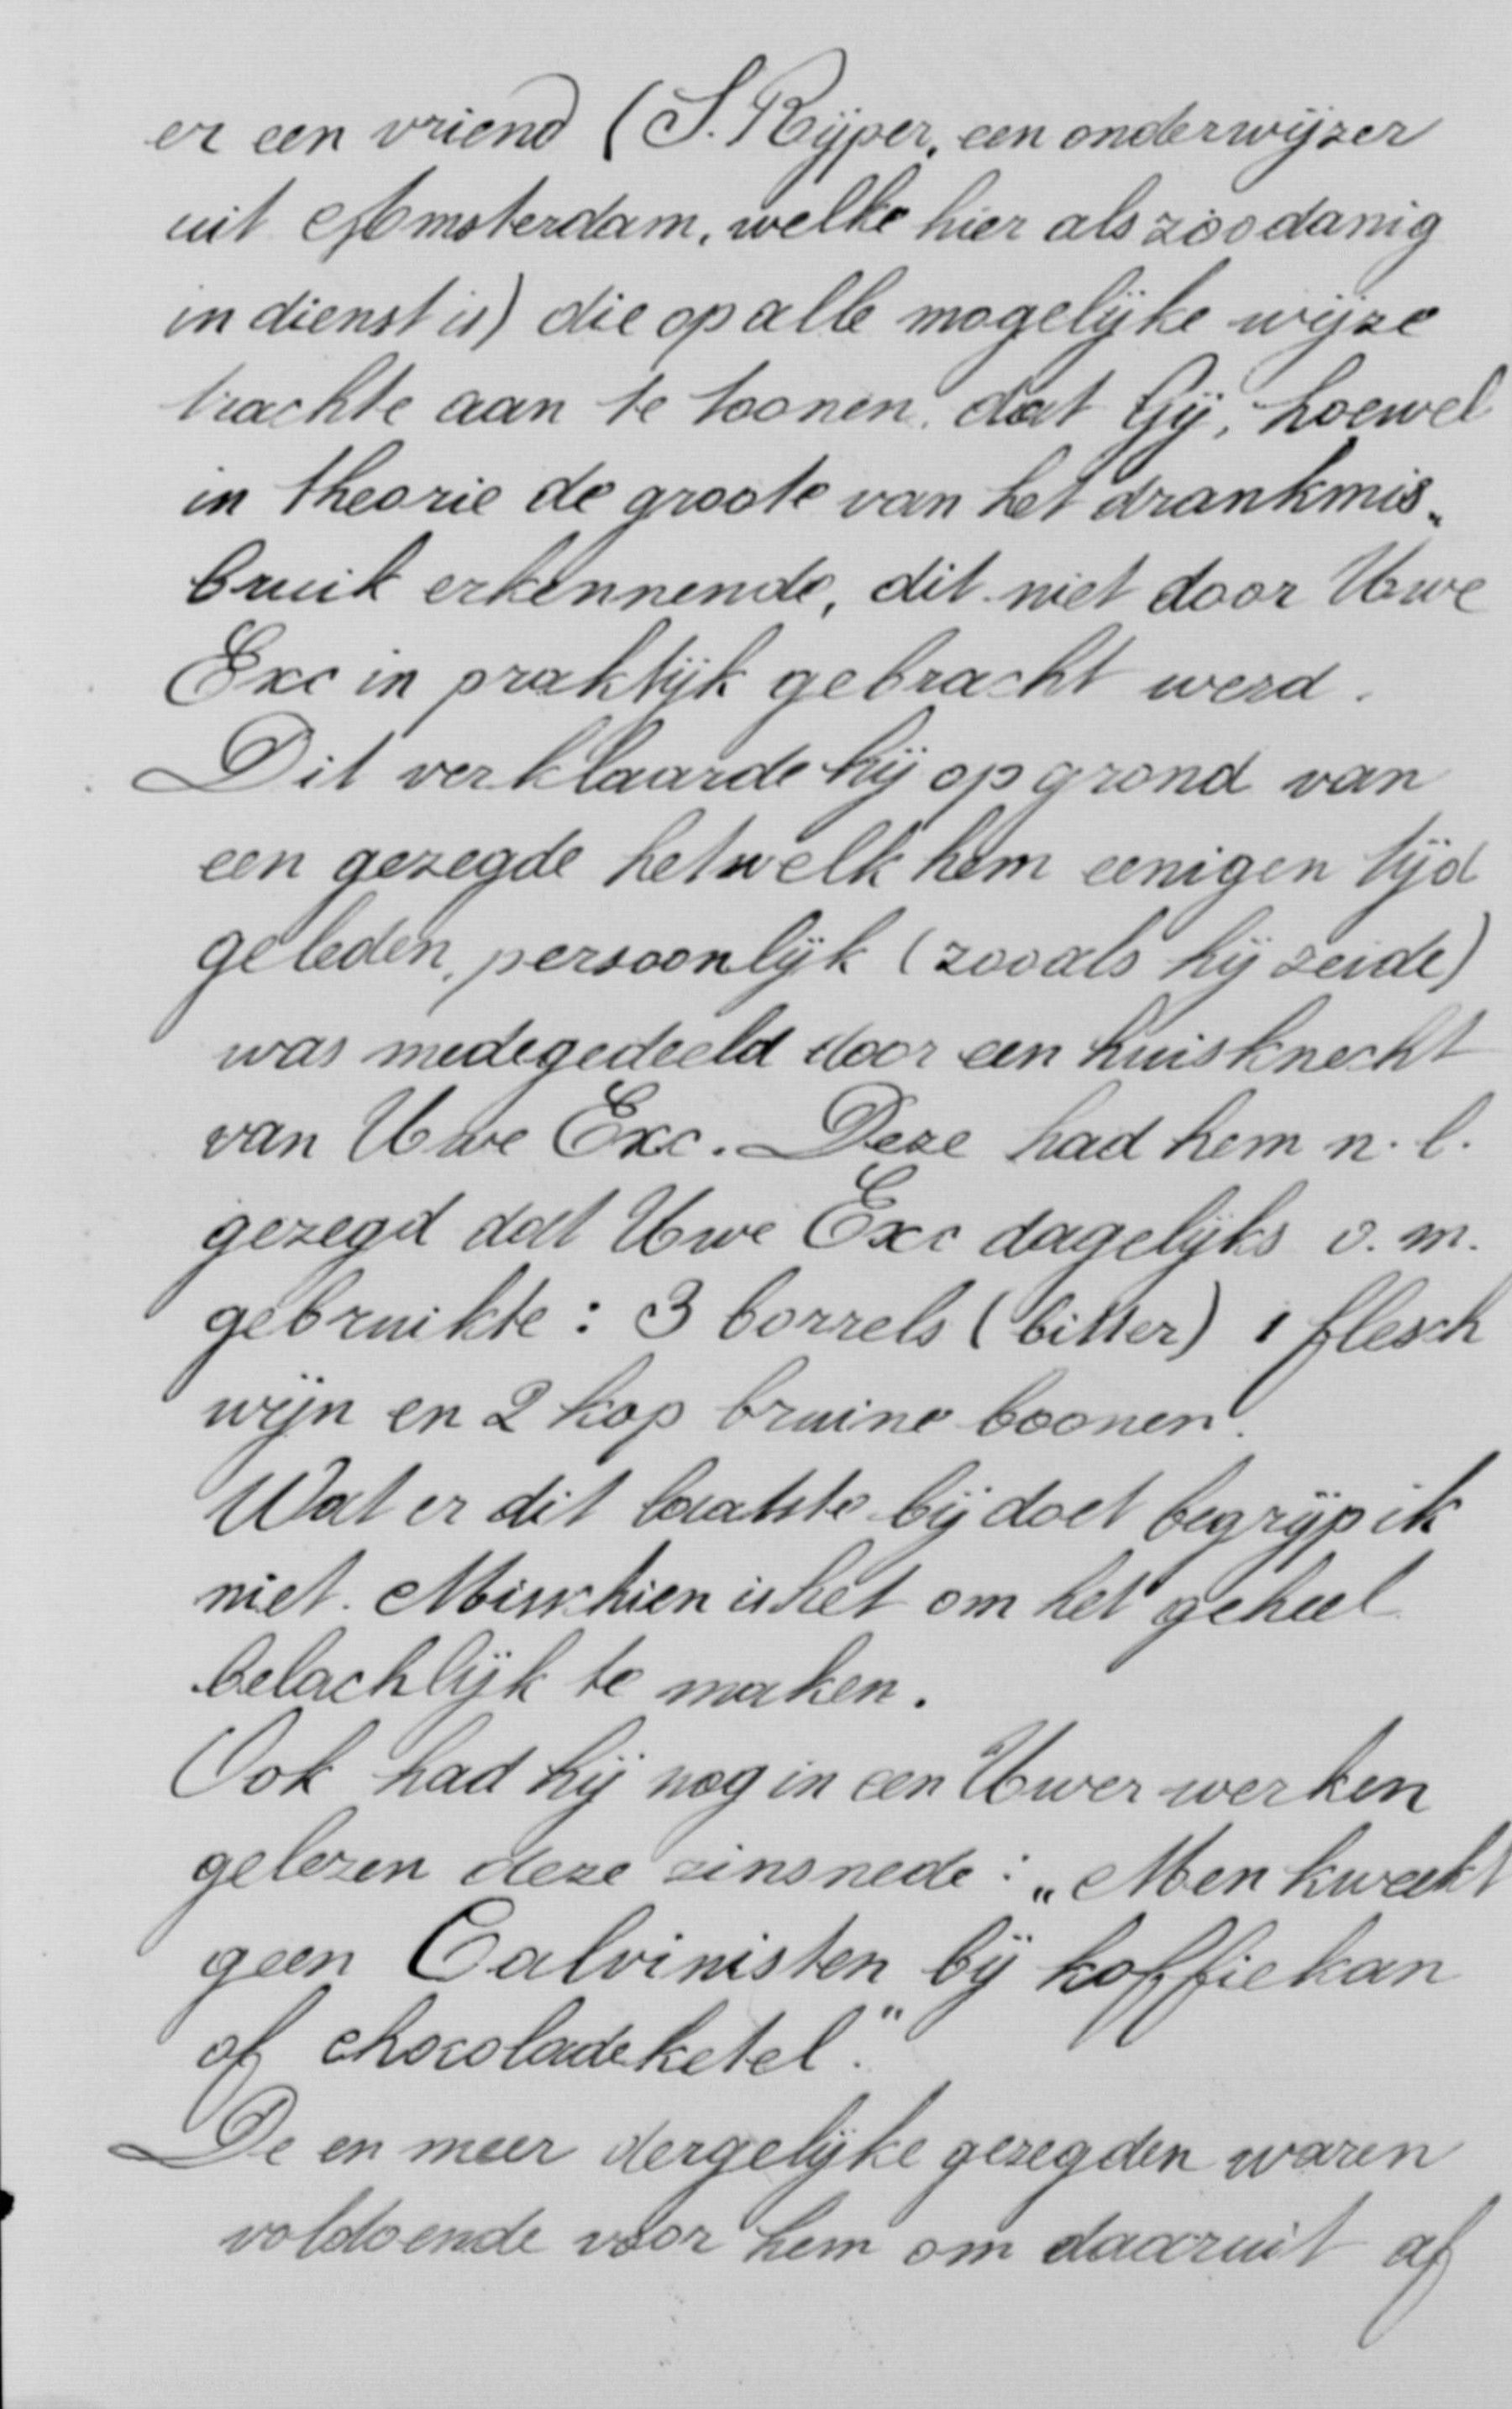 er een vriend (S. Rijper, een onderwijzer
uit Amsterdam, welke hier als zoodanig
in dienst is) die op alle mogelijke wijze
trachte aan te toonen, dat Gij, hoewel
in theorie de groote van het drankmis„
bruik erkennende, dit niet door Uwe
Exc in praktijk gebracht werd.
Dit verklaarde hij op grond van
een gezegde hetwelk hem eenigen tijd
geleden, persoonlijk (zooals hij zeide)
was medegedeeld door een huisknecht
van Uwe Exc. Deze had hem n.l.
gezegd dat Uwe Exc dagelijks o.m.
gebruikte: 3 borrels (bitter) 1 flesch
wijn en 2 kop bruine boonen.
Wat er dit laatste bij doet begrijp ik
niet. Misschien is het om het geheel
belachlijk te maken.
Ook had hij nog in een Uwer werken
gelezen deze zinsnede: „Men kweekt
geen Calvinisten bij koffiekan
of chocoladeketel."
De en meer dergelijke gezegden waren
voldoende voor hem om daaruit af